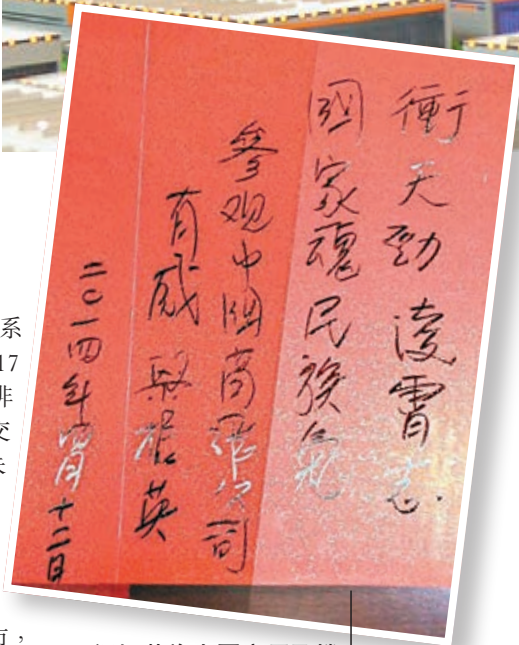 衝天勁 凌霄志
國家魂 民族氣
參观中國商飛公司
有感 
英
二〇一四年 月十二日
系
17
非
交